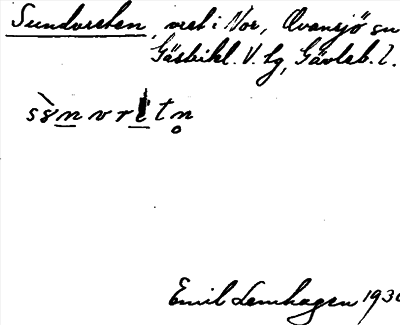 Sundvreten, vret i Nor, Ovansjö sn
Gästrikl. V. lg, Gävleb. l.
sɤ̀n vret n̥
Emil Lemhagen 193